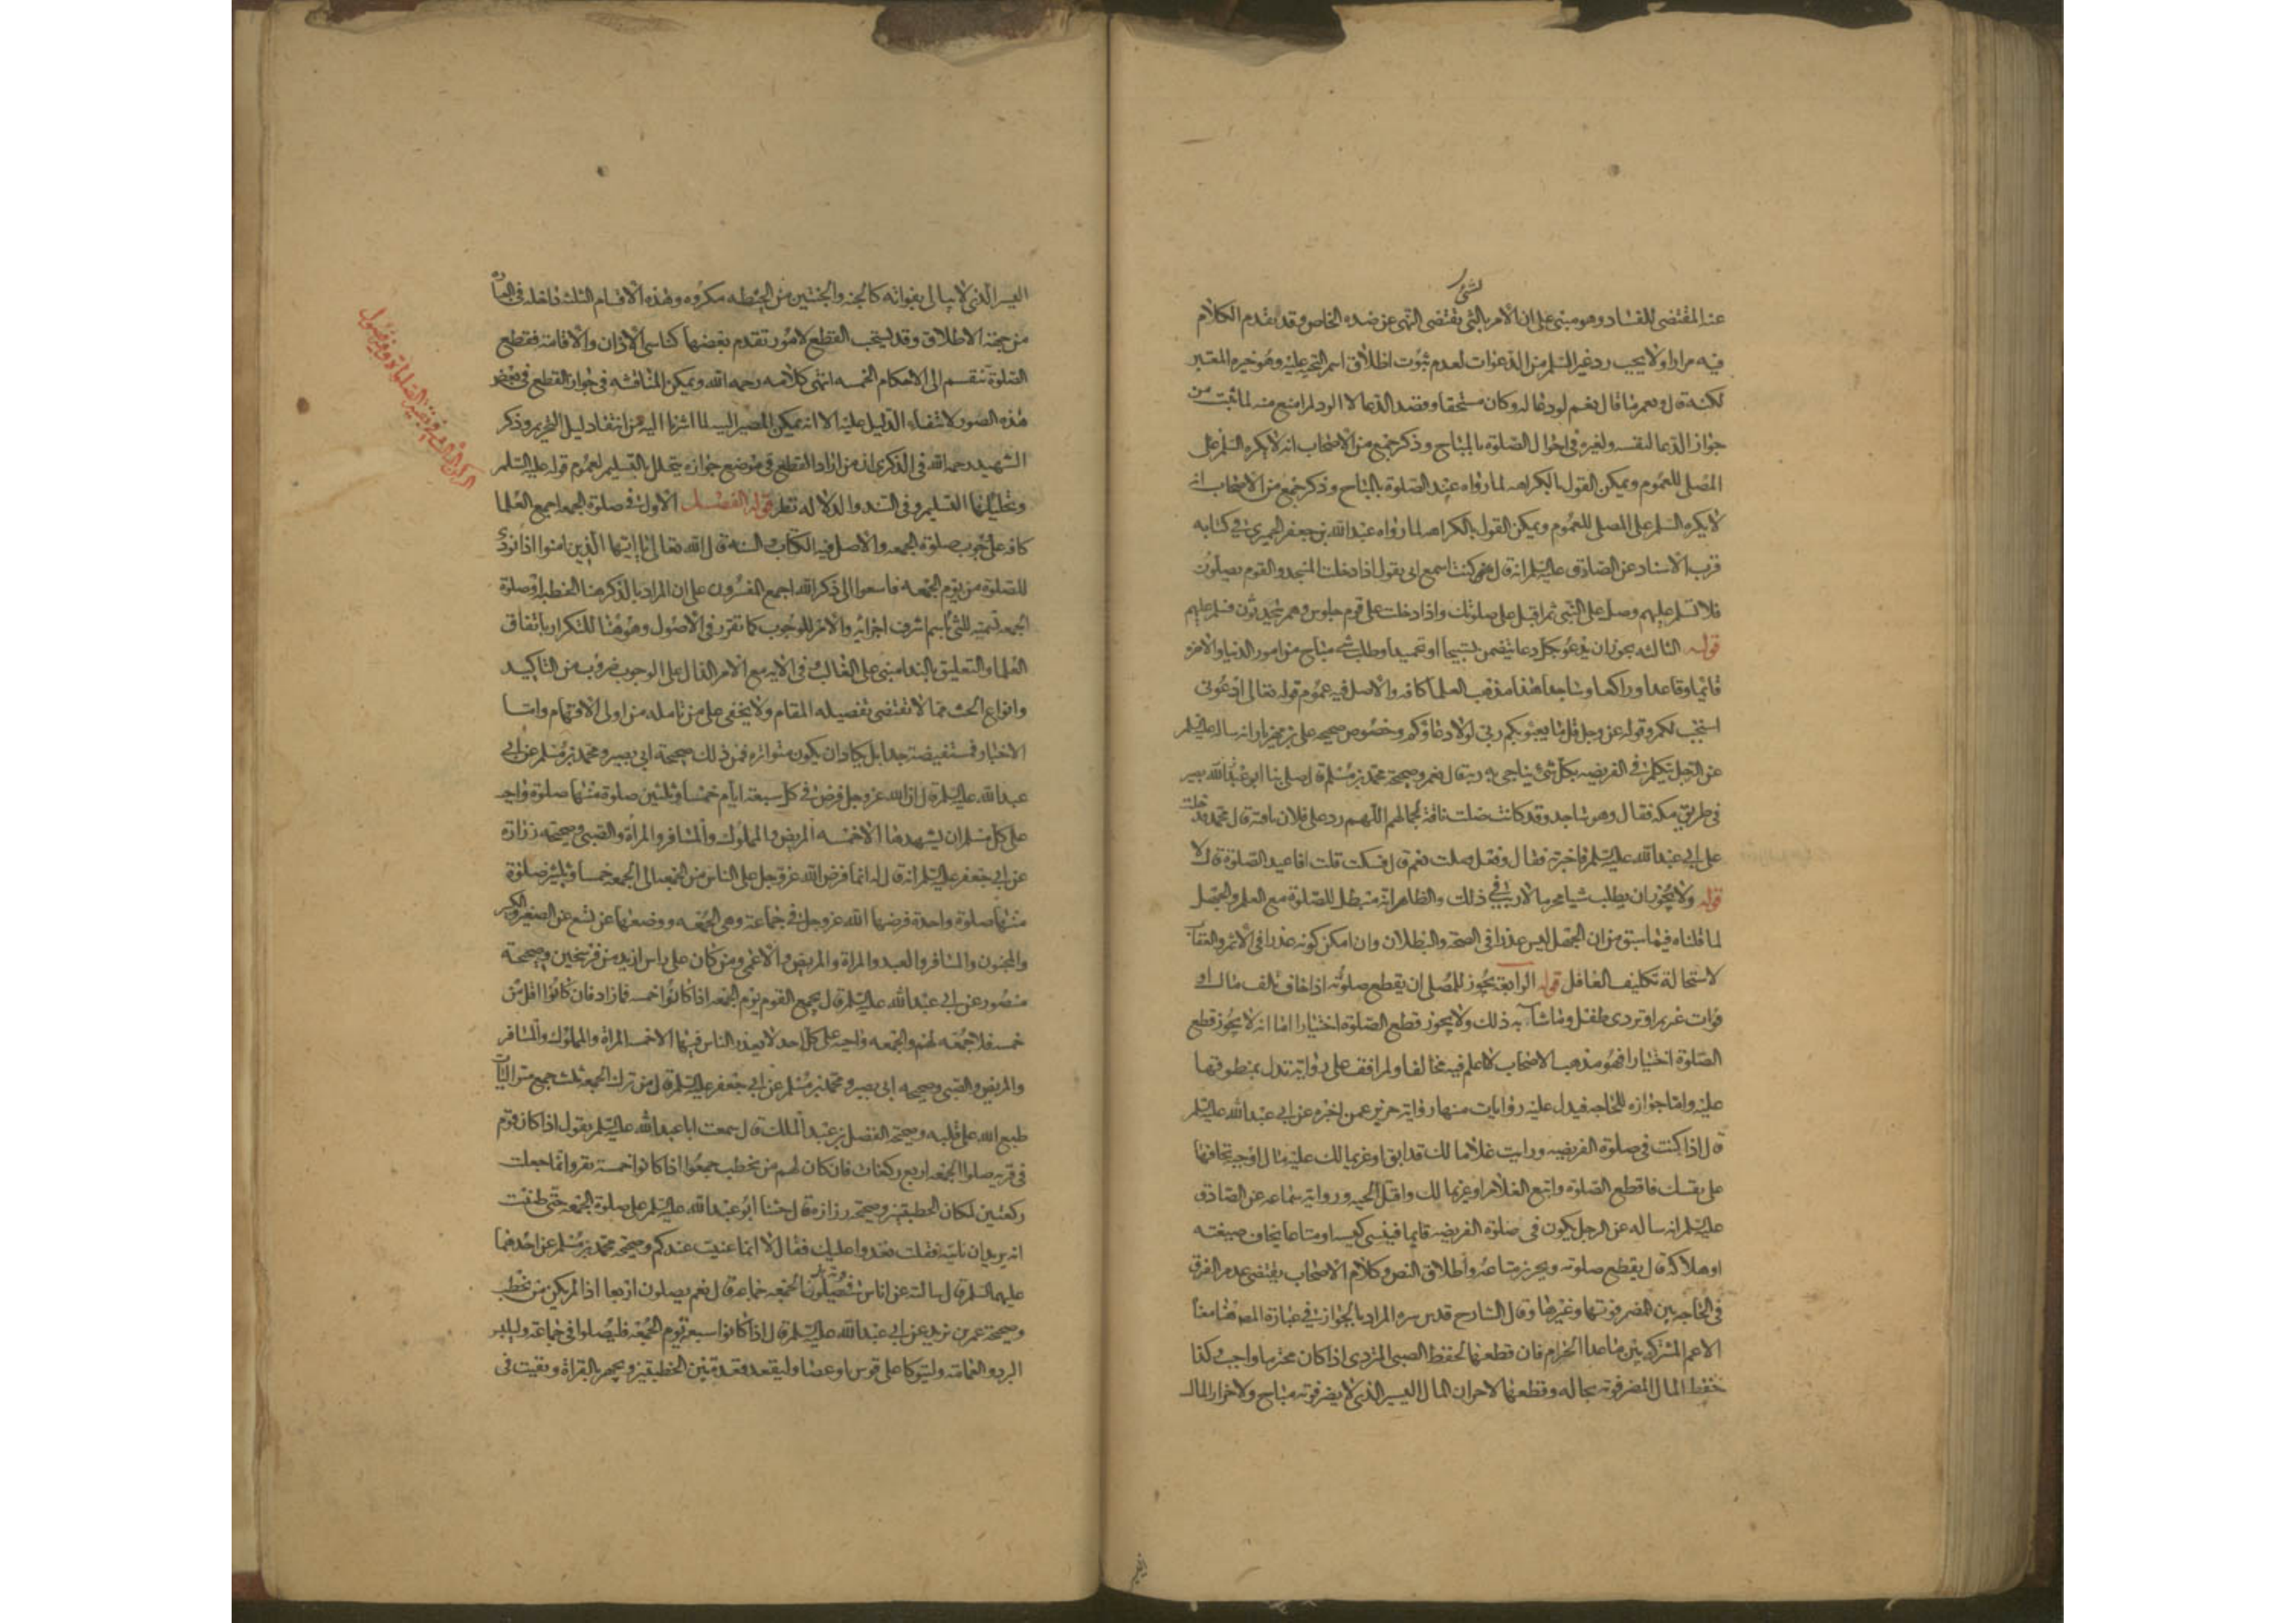 لشئ
عنا المقتضى للفساد وهو مبنى على ان الامر بالشئ يقتضى النهى عن ضده الخاص وقد تقدم الكلام
فيه مرارا ولا يجب رد غير السلم من الدعوات لعدم ثبوت اطلاق اسم التحيه عليه وهو خيره المعتبر
لكنه قال نعم لو دعا له وكان مستحقا وقصد الدعا لا الرد لم امنع منه لما ثبت من
جواز الدعا لنفسه ولغيره فى احوال الصلوة بالمباح وذكر جمع من الاصحاب انه لا يكره السلم على
المصلى للعموم ويمكن القول بالكراهه لما رواه عبد الصلوة بالمباح وذكر جمع من الاصحاب انه
لا يكره السلم على المصلى للعموم ويمكن القول بالكراهه لما رواه عبد الله بن جعفر الحميرى فى كتابه
قرب الاسناد عن الصادق عليه السلم انه قال كنت اسمع ابى يقول اذا دخلت المسجد والقوم يصلون
فلا تسلم عليهم وصل على النبى ثم اقبل على صلوتك واذا دخلت على قوم جلوس وهم يتحدثون فسلم عليهم
قوله الثالثه يجوز ان يدعو بكل دعا يتضمن تسبيحا او تحميدا وطلب شئ مباح من امور الدنيا والاخره
قائما وقاعدا وراكعا وساجدا هذا مذهب العلما كافه والاصل فيه عموم قوله تعالى ادعونى
استجب لكم وقوله عز وجل قل ما يعبؤ بكم ربى لولا دعاؤكم وخصوص صحيحه على بن مهزيار انه سال عليه السلم
عن الرجل يتكلم فى الفريضه بكل شئ يناجى به ربه قال نعم وصحيحة محمد بن مسلم قال صلى بنا ابو عبد الله بصير
فى طريق مكه فقال وهو ساجد وقد كانت ضلت ناقة لجمالهم اللهم رد على فلان ناقته قال محمد فدخلت
على ابى عبد الله عليه السلم فاخبرته فقال وفعل فقلت نعم قال فسكت قلت افاعيد الصلوة قال لا
قوله ولا يجوز ان يطلب شيا محرما لا ريب فى ذلك والظاهر انه مبطل للصلوة مع العلم والجهل
لما قلناه فيما سبق من ان الجهل ليس عذرا فى الصحه والبطلان وان امكن كونه عذرا فى الاثم والعقاب
لاستحالة تكليف الغافل قوله الرابعة يجوز للمصلى ان يقطع صلوته اذا خاف تلف مال او
فوات غريم او تردى طفل وما شابه ذلك ولا يجوز قطع الصلوة اختيارا اما انه لا يجوز قطع
الصلوة اختيارا فهو مذهب الاصحاب لا اعلم فيه مخالفا ولم اقف على رواية تدل بمنطوقها
عليه واما جوازه للحاجه فيدل عليه روايات منها رواية حريز عمن اخبره عن ابى عبد الله عليه السلم
قال اذا كنت فى صلوة الفريضه ورايت غلاما لك قد ابق او غريما لك عليه مال او حية تخافها
على نفسك فاقطع الصلوة واتبع الغلام او غريما لك واقتل الحيه ورواية سماعه عن الصادق
عليه السلم انه ساله عن الرجل يكون فى صلوة الفريضه قايما فينسى كيسه او متاعا يخاف ضيعته
او هلاكه قال يقطع صلوته ويحرز متاعه واطلاق النص وكلام الاصحاب يقتضى عدم الفرق
فى الحاجه بين المضر فوتها وغيرها وقال الشارح قدس سره المراد بالجواز فى عبارة المص هنا معنا
الاعم المشترك بين ما عدا الحرام فان قطعها لحفظ الصبى المتردى اذا كان محترما واجب وكذا
حفظ المال المضر فوته بحاله وقطعها لاحراز المال اليسير الذى لا يضر فوته مباح ولاحراز المال
اليسير الذى لا يبالى بفواته كالحبه والحبتين من الحنطه مكروه وهذه الاقسام الثلثه داخله فى العباره
من جهة الاطلاق وقد يستحب القطع لامور تقدم بعضها كناسى الاذان والاقامة فقطع
الصلوة تنقسم الى الاحكام الخمسه انتهى كلامه رحمه الله ويمكن المناقشه فى جواز القطع فى بعض
هذه الصور لانتفاء الدليل عليه الا انه يمكن المصير اليه لما اشرنا اليه من انتفاء دليل التحريم وذكر
الشهيد رحمه الله فى الذكرى انه من اراد القطع فى موضع جوازه يتحلل بالتسليم لعموم قوله عليه السلم
وتحليلها التسليم وفى السند والدلاله نظر قوله الفصل الاول فى صلوة الجمعه اجمع العلما
كافه على وجوب صلوة الجمعه والاصل فيه الكتاب والسنه قال الله تعالى يا ايها الذين امنوا اذا نودى
للصلوة من يوم الجمعه فاسعوا الى ذكر الله اجمع المفسرون على ان المراد بالذكر هنا الخطبه او صلوة
الجمعه تسميه للشئ باسم اشرف اجزايه والامر للوجوب كما تقرر فى الاصول وهو هنا للتكرار باتفاق
العلما والتعليق بالندا مبنى على الغالب وفى الايه مع الامر الدال على الوجوب ضروب من التاكيد
وانواع الحث مما لا يقتضى تفصيله المقام ولا يخفى على من تامله من اولى الافهام واما
الاخبار فمستفيضة جدا بل يكاد ان يكون متواتره فمن ذلك صحيحة ابى بصير ومحمد بن مسلم عن ابى
عبد الله عليه السلم قال ان الله عز وجل فرض فى كل سبعة ايام خمسا وثلثين صلوة منها صلوة واجبه
على كل مسلم ان يشهدها الا خمسه المريض والمملوك والمسافر والمراة والصبى وصحيحة زرارة
عن ابى جعفر عليه السلم انه قال له انما فرض الله عز وجل على الناس من الجمعه الى الجمعه خمسا وثلثين صلوة
منها صلوة واحدة فرضها الله عز وجل فى جماعة وهى الجمعه ووضعها عن تسع عن الصغير والكبير
والمجنون والمسافر والعبد والمراة والمريض والاعمى ومن كان على راس ازيد من فرسخين وصحيحة
منصور عن ابى عبد الله عليه السلم قال يجمع القوم يوم الجمعه اذا كانوا خمسه فما زاد فان كانوا اقل من
خمسه فلا جمعه لهم والجمعه واجبه على كل احد لا يعذر الناس فيها الا خمسه المراة والمملوك والمسافر
والمريض والصبى وصحيحه ابى بصير ومحمد بن مسلم عن ابى جعفر عليه السلم قال من ترك الجمعة ثلث جمع متواليات
طبع الله على قلبه وصحيحة الفضل بن عبد الملك قال سمعت ابا عبد الله عليه السلم يقول اذا كان قوم
فى قريه صلوا الجمعه اربع ركعات فان كان لهم من يخطب جمعوا اذا كانوا خمسة نفر وانما جعلت
ركعتين لمكان الخطبتين وصحيحة زرارة قال حثنا ابو عبد الله عليه السلم على صلوة الجمعه حتى ظننت
انه يريد ان ناتيه فقلت نغدوا عليك فقال لا انما عنيت عندكم وصحيحة محمد بن مسلم عن احدهما
عليهما السلم قال سالته عن اناس فى قرية هل يصلون الجمعه جماعة قال نعم يصلون اربعا اذا لم يكن من يخطب
وصحيحة عمر بن يزيد عن ابى عبد الله عليه السلم قال اذا كانوا سبعة يوم الجمعه فليصلوا فى جماعة وليلبس
البرد والعمامة وليتوكا على قوس او عصا وليقعد قعدة بين الخطبتين ويجهر بالقراة ويقنت فى